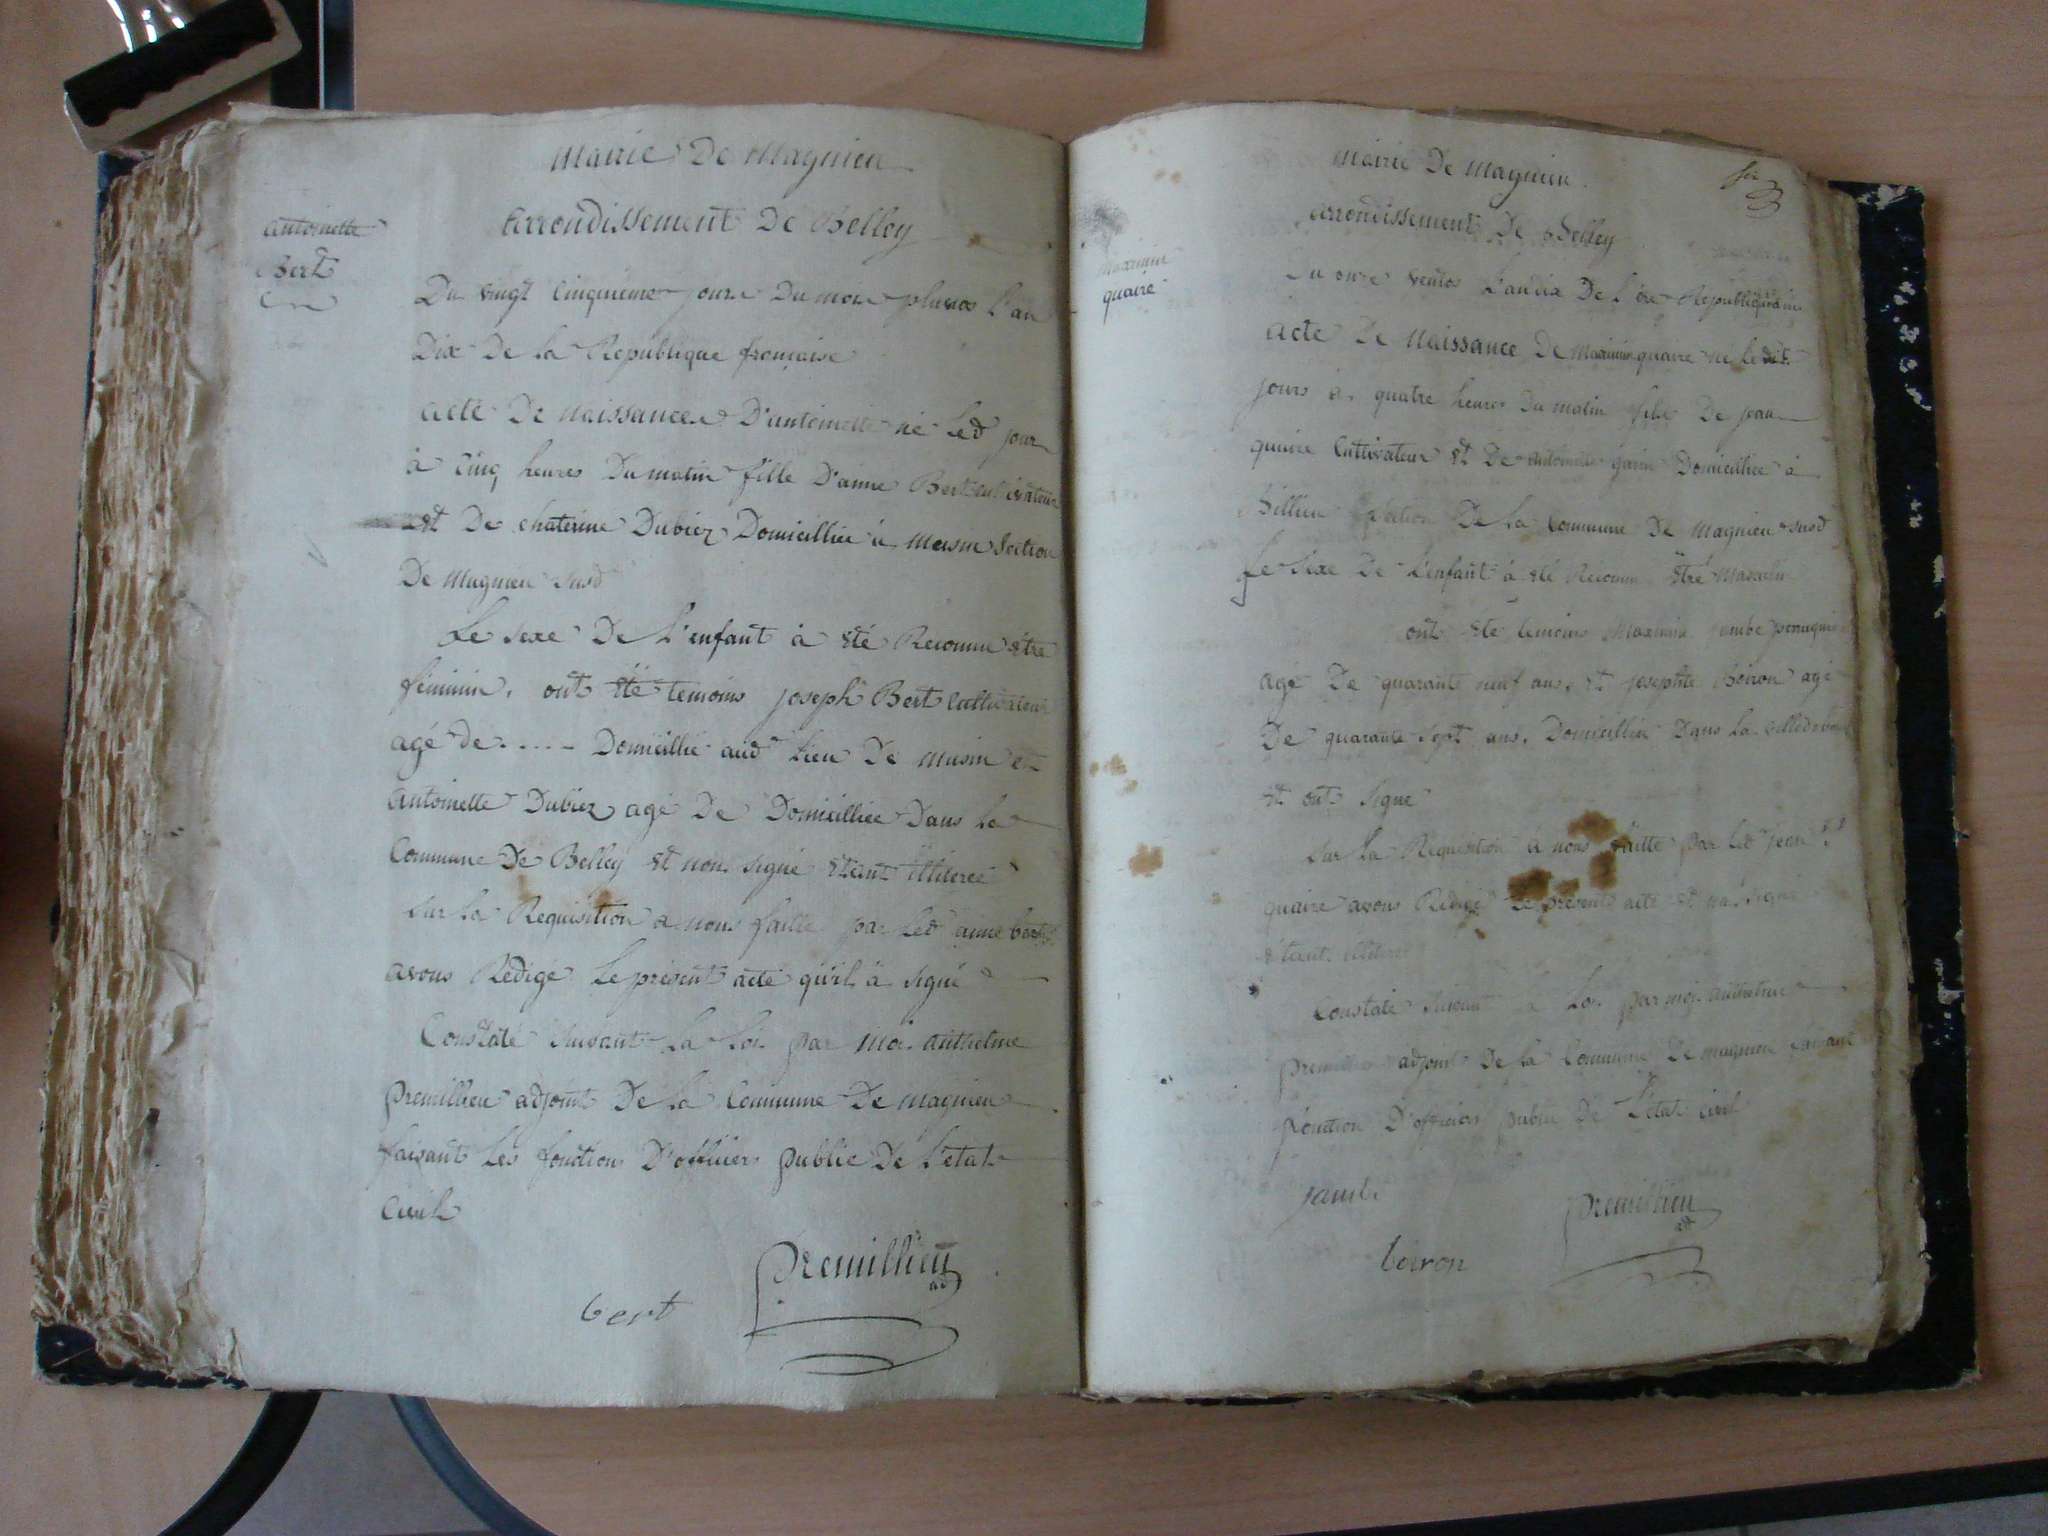 Mairie De Magnieu
Arrondissement De Belley
antoinette
Bert
Du vingt cinquieme jour Du mois pluvios L'an
Dix De la Republique françoise
acte De Naissance D'antoinette né led jour
à Cinq heures Du matin fille D'aime Bert cultivateur
et De chaterine Dubiez Domicilliée à musin Section
De Magnieu susd
Le sexe De L'enfant à été Reconnu être
féminin, ont été temoins joseph Bert Cultivateur
agé de ..... Domicillié aud Lieu De Musin et
antoinette Dubiez agé De Domicilliée Dans la
Commune De Belley et non signé étant illiteree
sur la Requisition a nous faitte par led aime bert
avons Redigé Le présent acte qu'il à signé
Constaté suivant La Loi par moi anthelme
premillieu adjoint De La Commune De magnieu
faisant Les fonctions D'officiers public De L'etat
Civil
bert
premillieu
adj
Mairie De Magnieu
arrondissement De Belley
maximin
quaire
Du onze ventos L'an dix De L'ére Republiquain
acte De Naissance De maximin quaire né Le dit
jours à quatre heures Du matin fils De jean
quaire Cultivateur et De antoinette Domicilliée à
Billieu Section De La Commune De Magnieu susd
Le sexe De L'enfant à été Reconnu être Masculin
ont été temoins Maximin perruquier
agé De quarante neuf ans, et josephte Beiron agé
De quarante sept ans, Domicilliée Dans la
et ont signé
sur La Requisition à nous faitte par led jean
quaire avons Redigé Le present acte et na signé
étant illiteré
Constaté suivant la Loi par moi anthelme
premillieu adjoint De La Commune De magnieu faisant
fonction D'officiers public De L'état civil
beiron
premillieu
adj